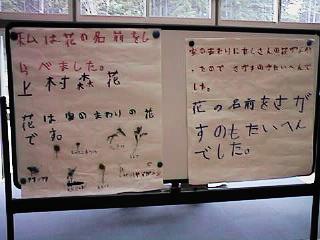 私は花の名前をし
らべました。
上村森花
花は家のまわりの花
です。
家のまわりにたくさんの花があ
ったので さがすのがたいへんで
した。
花の名前をさが
すのもたいへん
でした。